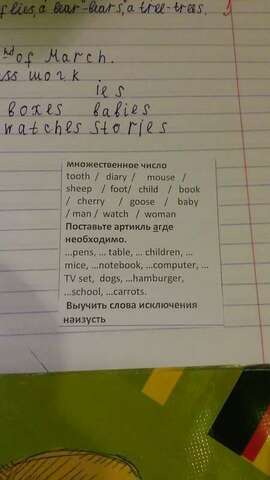 flies, a bear-bears, a tree-trees.
of March.
ss work.
ies
boxes babies
watches stories
множественное число
tooth / diary / mouse /
sheep / foot/ child / book
/ cherry / goose / baby
/ man / watch / woman
Поставьте артикль aгде
необходимо.
…pens, … table, … children, …
mice, …notebook, …computer, …
TV set, dogs, …hamburger,
…school, …carrots.
Выучить слова исключения
наизусть